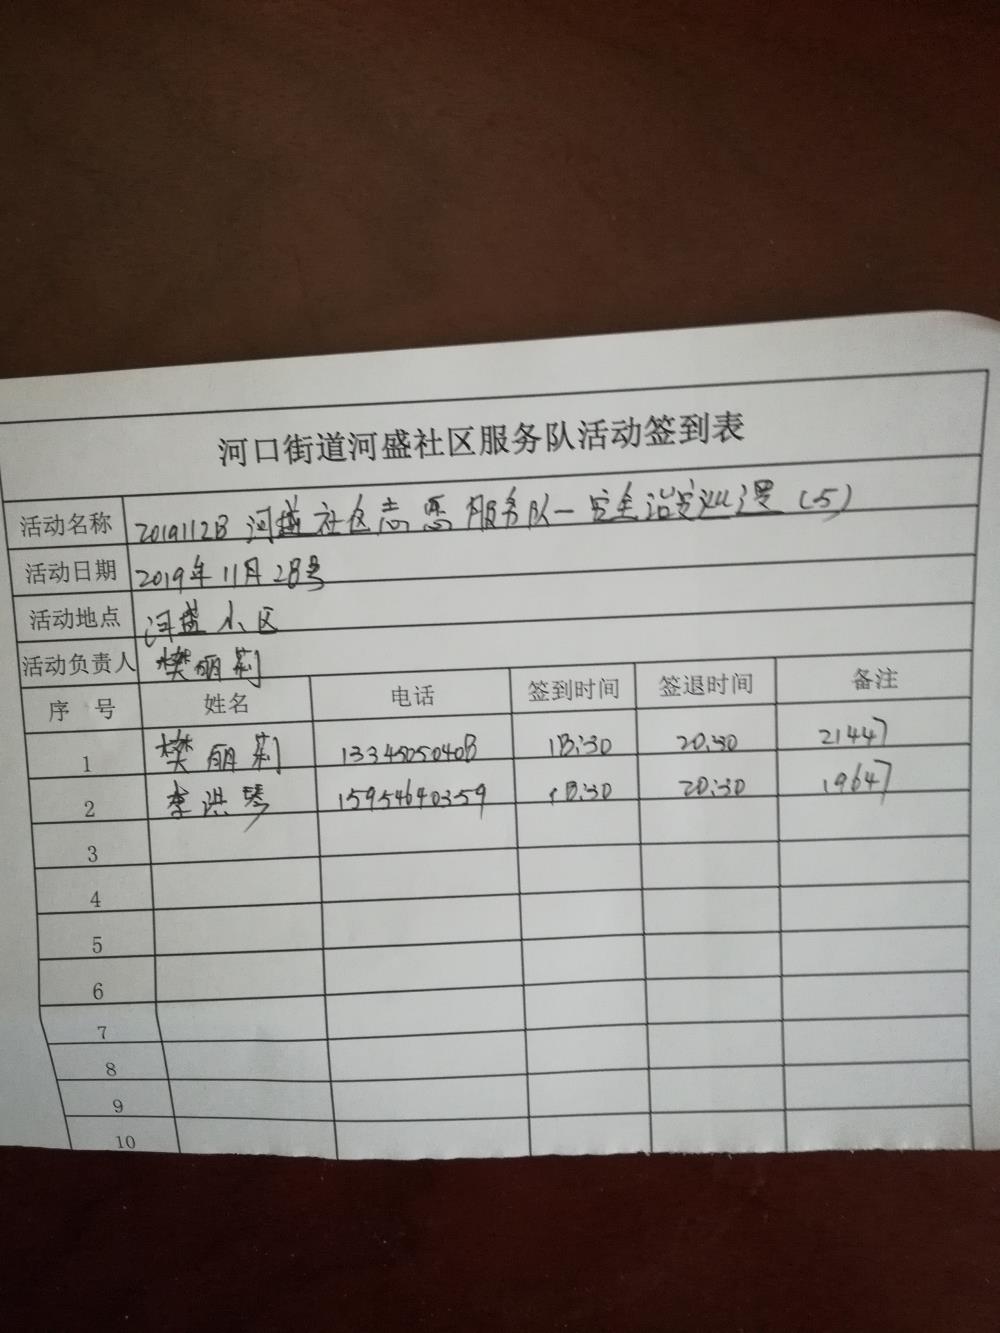 河口街道河盛社区服务队活动签到表
活动名称 20191128 河盛社区志愿服务队一安全治安巡逻(5)
活动日期 2019年11月28号
活动地点 河盛小区
活动负责人 樊丽莉
序号 姓名 电话 签到时间 签退时间 备注
1 樊丽莉 13345050408 18:30 20:30 21447
2 李洪琴 15954640359 18:30 20:30 19647
3
4
5
6
7
8
9
10